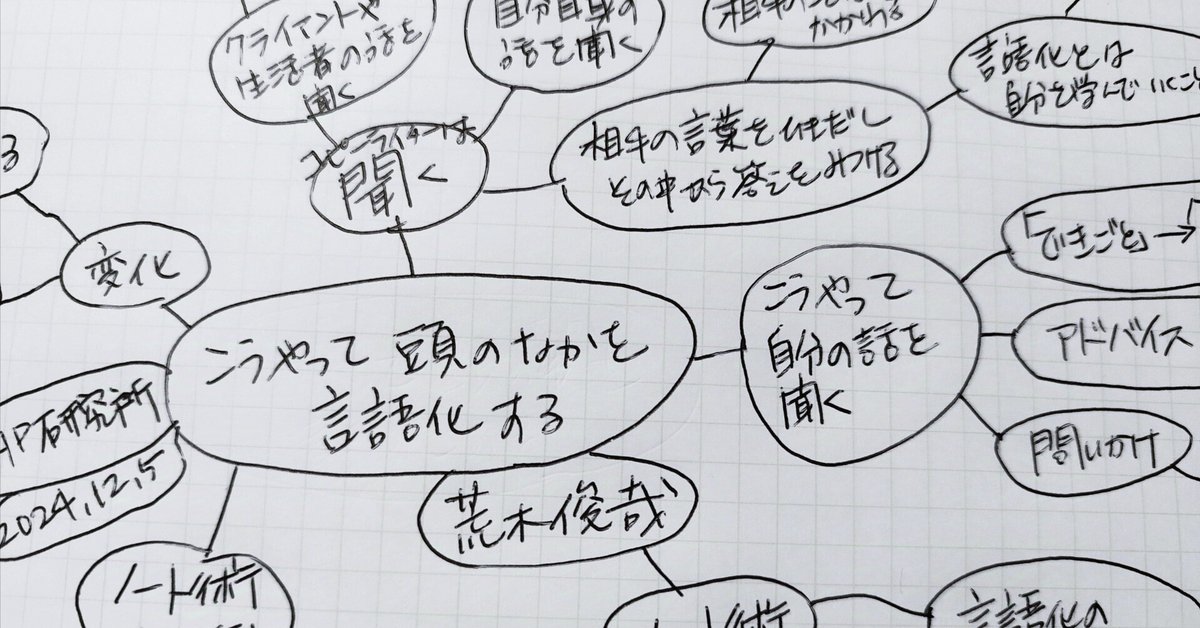 クライアントや
生活者の話を
聞く
自分自身の
話を聞く
かかわる
言語化とは
自分を学んでいくこと
コピーライターは
聞く
相手の言葉をひきだし
その中から答えをみつける
る
変化
「できごと」→「
こうやって
自分の話を
聞く
アドバイス
問いかけ
こうやって頭のなかを
言語化する
HP研究所
2024,12,5
荒木俊哉
ノート術
ノート術
言語化の